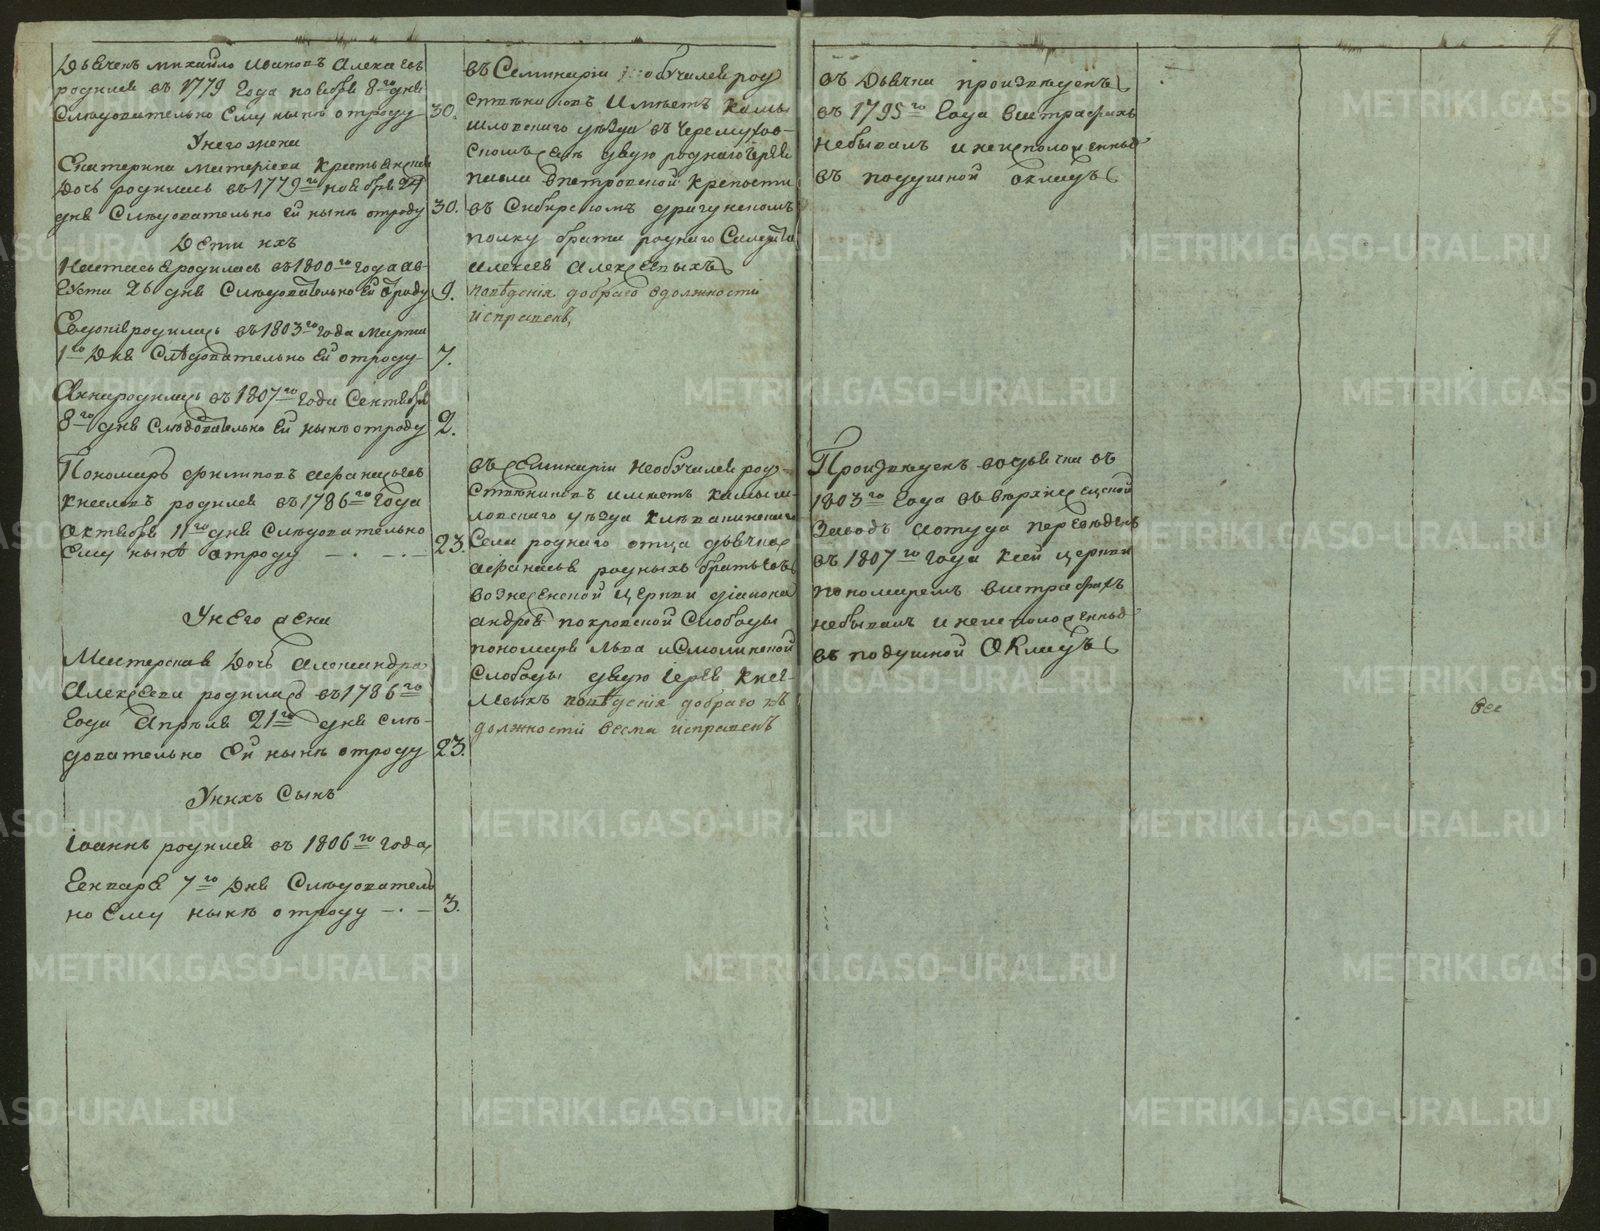 Дьячекъ михайло Ивановъ Алекѣевъ
родился въ 1779 Года ноября 8го дня
Слѣдовательно Ему нынѣ отроду 30.
Унего жена
Екатерина матвѣева крестьянская
дочь родилась въ 1779го ноября 24
дня Слѣдовательно ей нынѣ отроду 30.
Дети ихъ
Настасья родилась въ 1800го года ав-
густа 26 дня Слѣдовательно Ей отроду 9.
Евдокія родилась въ 1803го года марта
1го Дня Слѣдовательно Ей отроду 7.
Анна родилась въ 1807го года Сентября
8го дня Слѣдовательно Ей нынѣ отроду 2.
Пономарь филиповъ афанасьевъ
киселевъ родился въ 1786го Года
октября 11го дня Слѣдовательно
Ему нынѣ отроду 23.
Унего жена
Мастерская Дочь Александра
Алексеева родилась въ 1786го
Года Апрѣля 21го дня слѣ-
довательно Ей нынѣ отроду 23.
Унихъ Сынъ
Іоаннъ родился въ 1806го года
Генваря 7го Дня Слѣдователь
но Ему нынѣ отроду 3.
въ Семинаріи необучался род
ственниковъ Имѣетъ камы
шловского уѣзда въ Черемухов-
скомъ селѣ дядю роднаго іерея
павла впетровской крепости
въ Сибирскомъ драгунскомъ
полку брата роднаго
алексея Алексеевыхъ
поведенія добраго вдолжности
исправенъ,
въ семинаріи необучался род-
ственниковъ имѣетъ камыш-
ловскаго уѣзда клевакинскаго
Села роднаго отца дьячка
афанасья родныхъ братьевъ
вознесенской церкви діакона
андрея покровской Слободы
пономаря льва исмолинской
Слободы дядю іерея
поведенія добраго въ
должности весма исправенъ
въ Дьячки произведенъ
въ 1795го Года вштрафахъ
небывалъ инеисположенный
въ подушной окладъ
Произведенъ водьячки въ
1803го Года въ
Заводъ аотуда переведенъ
въ 1807го года ксей церкви
пономаремъ вштрафахъ
небывалъ инеисположенный
въ подушной Окладъ
METRIKI.GASO-URAL.RU